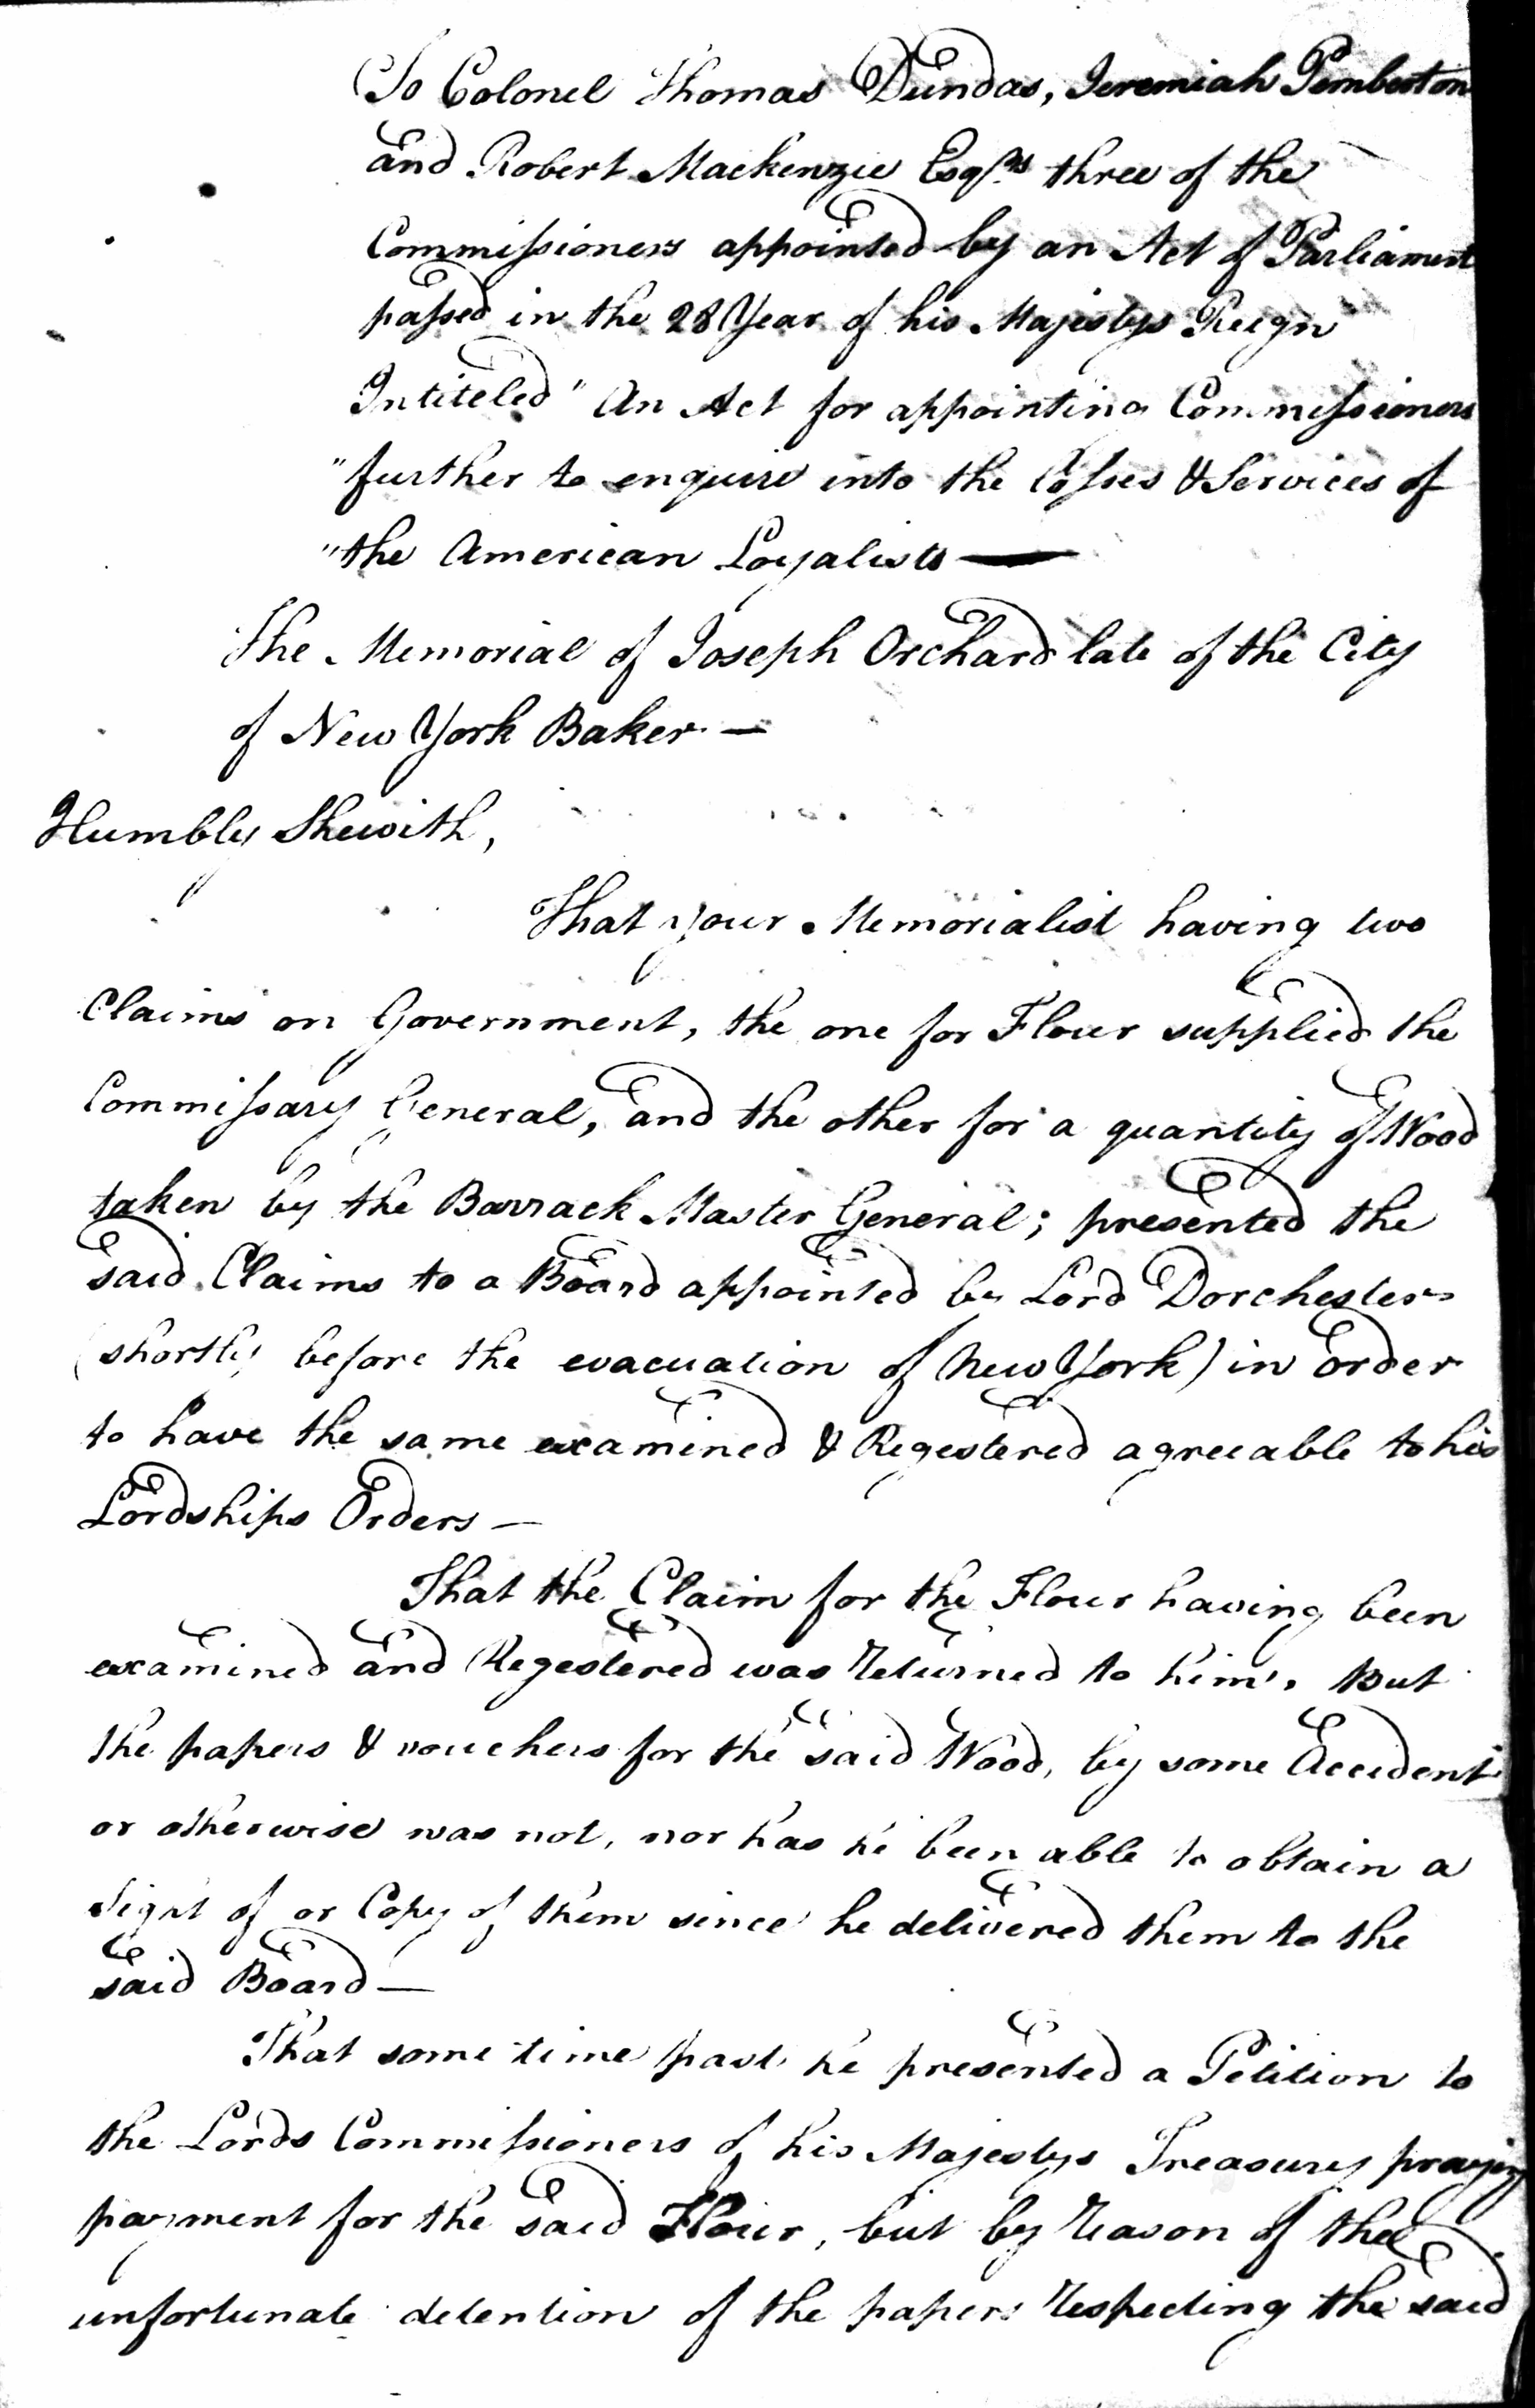 To Colonel Thomas Dundas, Jeremiah Pemberton
and Robert Mackenzie Esqrs three of the
Commissioners appointed by an Act of Parliament
passed in the 28 Year of his Majestys Reign
Intiteled "An Act for appointing Commissioners
"further to enquire into the Losses & Services of
"the American Loyalists —
The Memorial of Joseph Orchard late of the City
of New York Baker —
Humbly Shewith,
That your Memorialist having two
Claims on Government, the one for Flour supplied the
Commissary General, and the other for a quantity of Wood
taken by the Barrack Master General; presented the
said Claims to a Board appointed by Lord Dorchester
(shortly before the evacuation of New York) in order
to have the same examined & Regestered agreeable to his
Lordships Orders —
That the Claim for the Flour having been
examined and Regestered was returned to him. But
the papers & vouchers for the said Wood, by some Accident
or otherwise was not, nor has he been able to obtain a
Sight of or Copy of them since he delivered them to the
said Board —
That some time past he presented a Petition to
the Lords Commissioners of his Majestys Treasury praying
payment for the said Flour, but by reason of the
unfortunate detention of the papers respecting the said